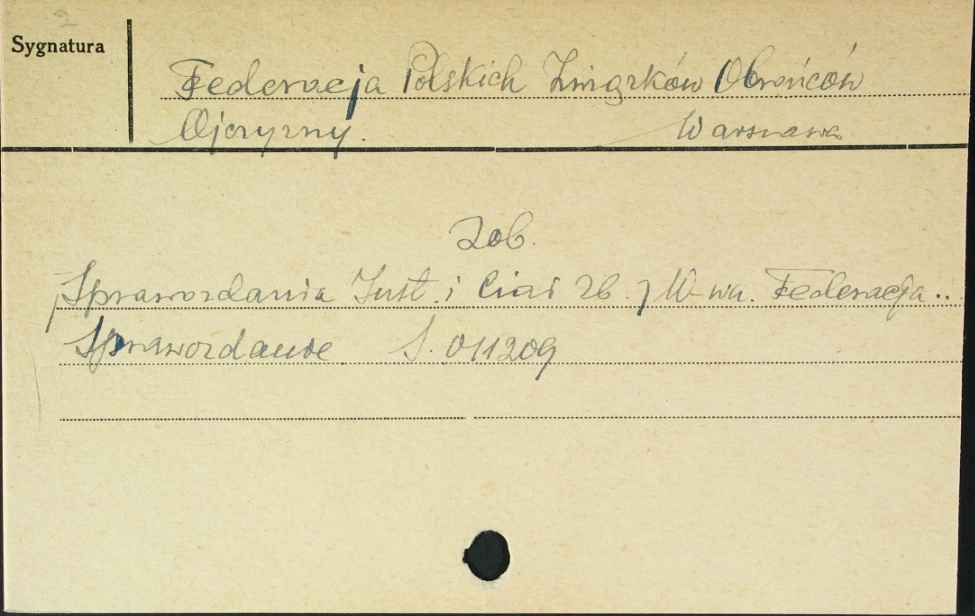 Sygnatura
Federacja Polskich Związków Obrońców
Ojczyzny. Warszawa
Zob.
Sprawozdania Inst. i Ciał Zb. W-wa. Federacja..
Sprawozdanie S. 011209